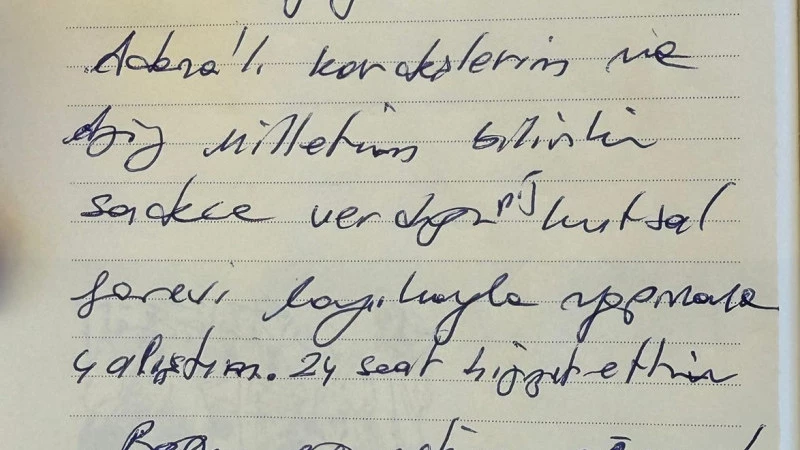 Adana'lı kardeşlerim ve
Aziz milletim bilinki
sadece verdiğiniz kutsal
görevi layıkıyla yapmaya
çalıştım. 24 saat hizmet ettim